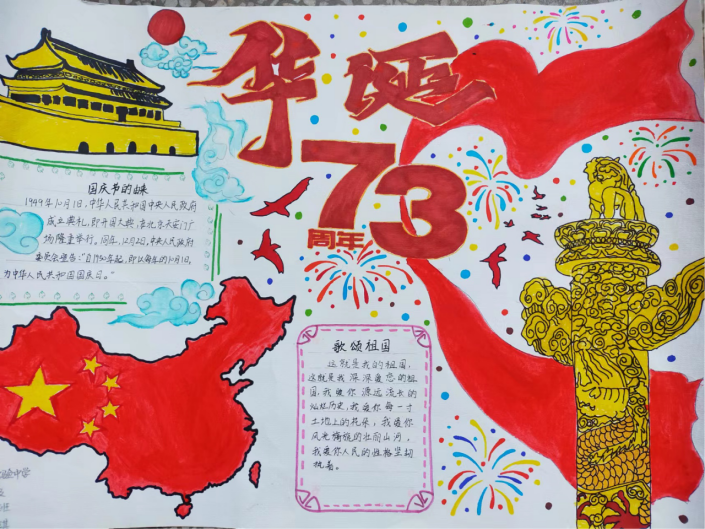 华诞
73
周年
国庆节的由来
1949年10月1日,中华人民共和国中央人民政府
成立典礼,即开国大典,在北京天安门广
场隆重举行。同年,12月2日,中央人民政府
委员会宣告:“自1950年起,即以每年的10月1日,
为中华人民共和国国庆日。”
歌颂祖国
这就是我的祖国,
这就是我深深爱恋的祖
国。我爱你源远流长的
灿烂历史,我爱你每一寸
土地上的花朵,我爱你
风光旖旎的壮丽山河,
我爱你人民的性格坚韧
执着。
验中学